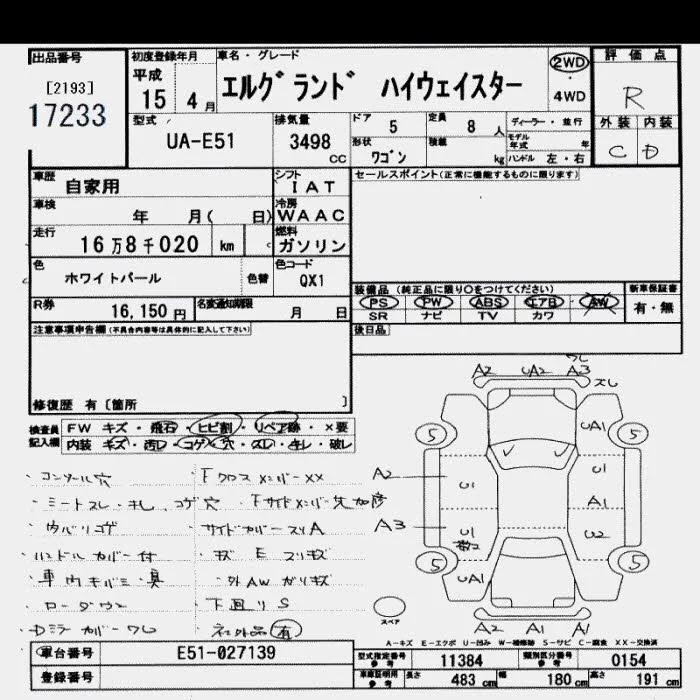 出品番号
[2193]
17233
初度登録年月
平成
15 4月
車名・グレード
エルグランド ハイウェイスター
2WD
・
4WD
評価点
R
外装 内装
C D
型式
UA-E51
排気量
3498
CC
ドア
5
定員
8人
形状
ワゴン
積載
kg
ディーラー・並行
モデル年式 年
ハンドル 左・右
車歴
自家用
シフト
IAT
車検
年 月( 日)
冷房
WAAC
走行
16万8千020 km
燃料
ガソリン
色
ホワイトパール
色替
色コード
QX1
セールスポイント(正常に機能するものに限ります)
R券
16,150円
名変通知期限
月 日
装備品 (純正品に限り○をつけてください)
PS PW ABS エアB AW
SR ナビ TV カワ
新車保証書
有・無
後日品
注意事項申告欄(不具合内容等は具体的に記入して下さい)
修復歴 有〔箇所 〕
検査員
記入欄
FW キズ・飛石・ヒビ割・リペア跡・×要
内装 キズ・汚レ・コゲ・穴・スレ・キレ・破レ
・コンソール穴
・FクロスメンバーXX
・シートスレ・キレ、コゲ穴
・Fサイドメンバー先加修
・サイドカバースリA
・ハンドルカバー付
・キズ E スリキズ
・車内キバミ・臭
・外AWガリキズ
・ローダウン
・下廻りS
・Dミラーカバーワレ
・社外品 有
ワレ
A2 UA2 A3
スレ
5 UA1 5
A2 U1 U1
A1
A3 U1 U2
5 UA1 5
スペア
A2 A1 A1
A-キズ E-エクボ U-凹み W-補修跡 S-サビ C-腐食 XX-交換済
車台番号
E51-027139
登録番号
型式指定番号
参考
11384
類別区分番号
参考
0154
車庫証明用
参考
長さ
483 cm
幅
180 cm
高さ
191 cm